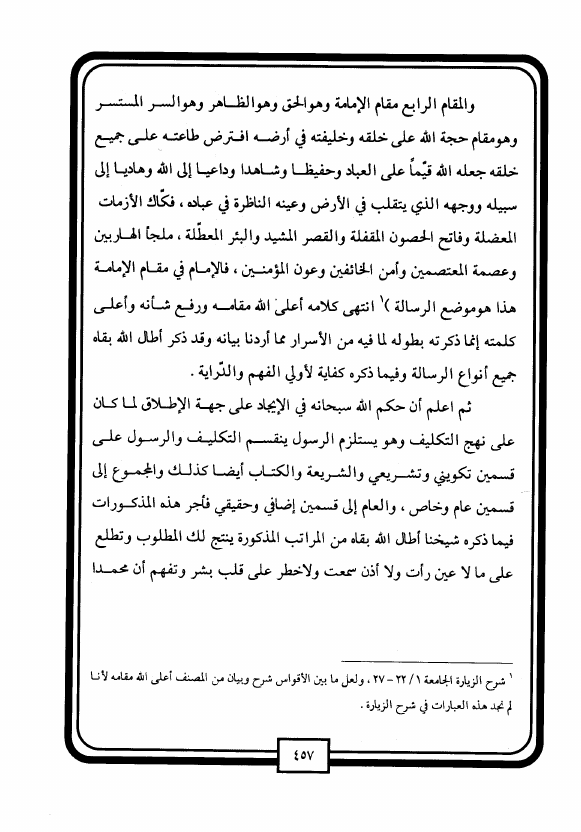 والمقام الرابع مقام الإمامة وهوالحق وهوالظـاهر وهوالسر المستسر
وهومقام حجة الله على خلقه وخليفته في أرضـه افـترض طاعتـه علـى جميـع
خلقه جعله الله قيّماً على العباد وحفيظـا وشـاهدا وداعيـا إلى الله وهاديـا إلى
سبيله ووجهه الذي يتقلب في الأرض وعينه الناظرة في عباده ، فكّاك الأزمات
المعضلة وفاتح الحصون المقفلة والقصر المشيد والبئر المعطّلة ، ملجأ الهاربين
وعصمة المعتصمين وأمن الخائفين وعون المؤمنـين ، فالإمام في مقـام الإمامـة
هذا هوموضع الرسالة )١ انتهى كلامه أعلى الله مقامـه ورفـع شـأنه وأعلـى
كلمته إنما ذكرته بطوله لما فيه من الأسرار مما أردنا بيانه وقد ذكر أطال الله بقاه
جميع أنواع الرسالة وفيما ذكره كفاية لأولي الفهم والدّراية .
ثـم اعلـم أن حكـم الله سبحانه في الإيجاد على جهـة الإطـلاق لمـا كـان
على نهج التكليف وهو يستلزم الرسول ينقسـم التكليـف والرسـول علـى
قسمين تكويني وتشـريعي والشـريعة والكتاب أيضـا كذلـك والمجمـوع إلى
قسمين عام وخاص ، والعام إلى قسمين إضافي وحقيقي فأجر هذه المذكـورات
فيما ذكره شيخنا أطال الله بقاه من المراتب المذكورة ينتج لك المطلوب وتطلع
على ما لا عين رأت ولا أذن سمعت ولاخطر على قلب بشر وتفهم أن محمـدا
١ شرح الزيارة الجامعة ١/ ٢٢ – ٢٧ ، ولعل ما بين الأقواس شرح وبيان من المصنف أعلى الله مقامه لأنـا
لم نجد هذه العبارات في شرح الزيارة .
٤٥٧